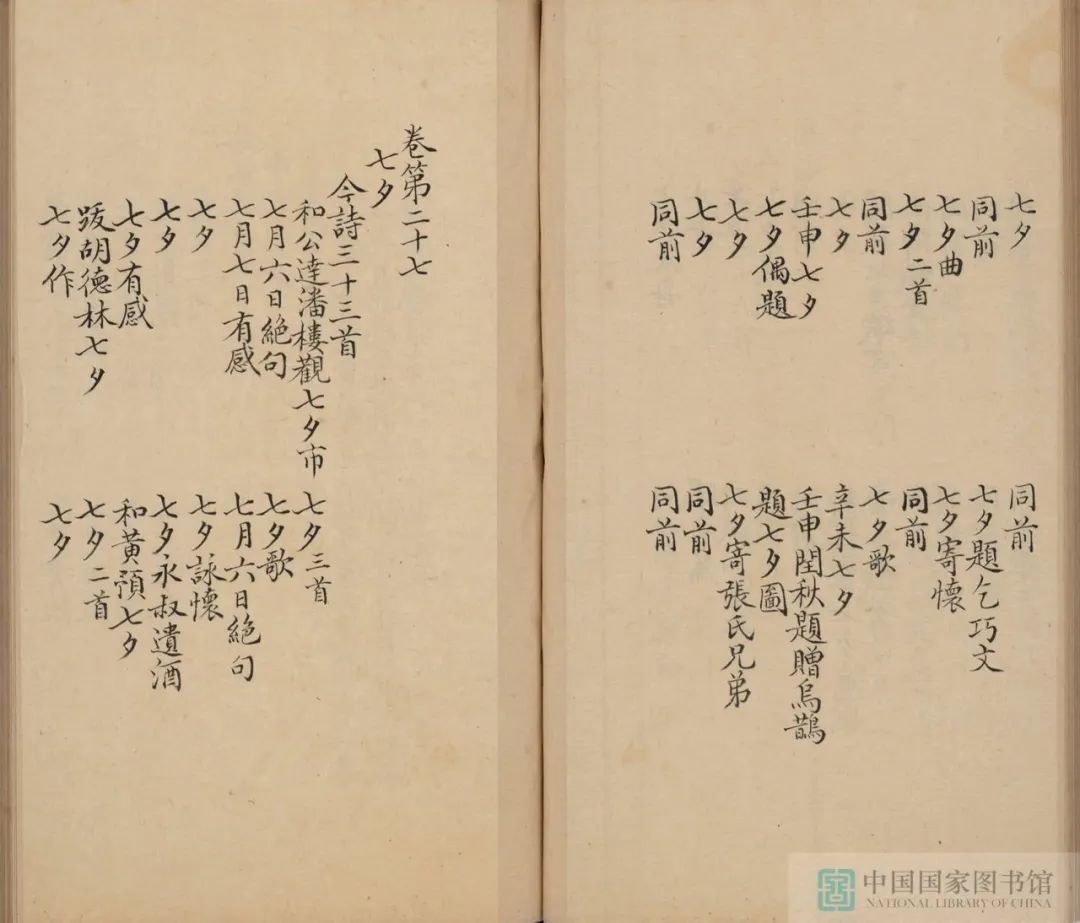 七夕　同前
同前　七夕題乞巧文
七夕曲　七夕寄懷
七夕二首　同前
同前　七夕歌
七夕　辛未七夕
壬申七夕　壬申閏秋題贈烏鵲
七夕偶題　題七夕圖
七夕　七夕寄張氏兄弟
七夕　同前
同前　同前
卷第二十七
七夕
今詩三十三首
和公達潘樓觀七夕市　七夕三首
七月六日絶句　七夕歌
七月七日有感　七月六日絶句
七夕　七夕詠懷
七夕　七夕永叔遺酒
七夕有感　和黃預七夕
跋胡德林七夕　七夕二首
七夕作　七夕
中国国家图书馆
NATIONAL LIBRARY OF CHINA